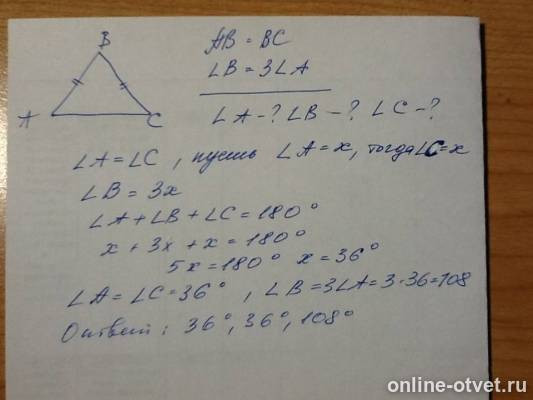 B
A
C
AB = BC
∠B = 3∠A
∠A - ? ∠B - ? ∠C - ?
∠A = ∠C, пусть ∠A = x, тогда ∠C = x
∠B = 3x
∠A + ∠B + ∠C = 180°
x + 3x + x = 180°
5x = 180° x = 36°
∠A = ∠C = 36°, ∠B = 3∠A = 3·36 = 108
Ответ: 36°, 36°, 108°
online-otvet.ru